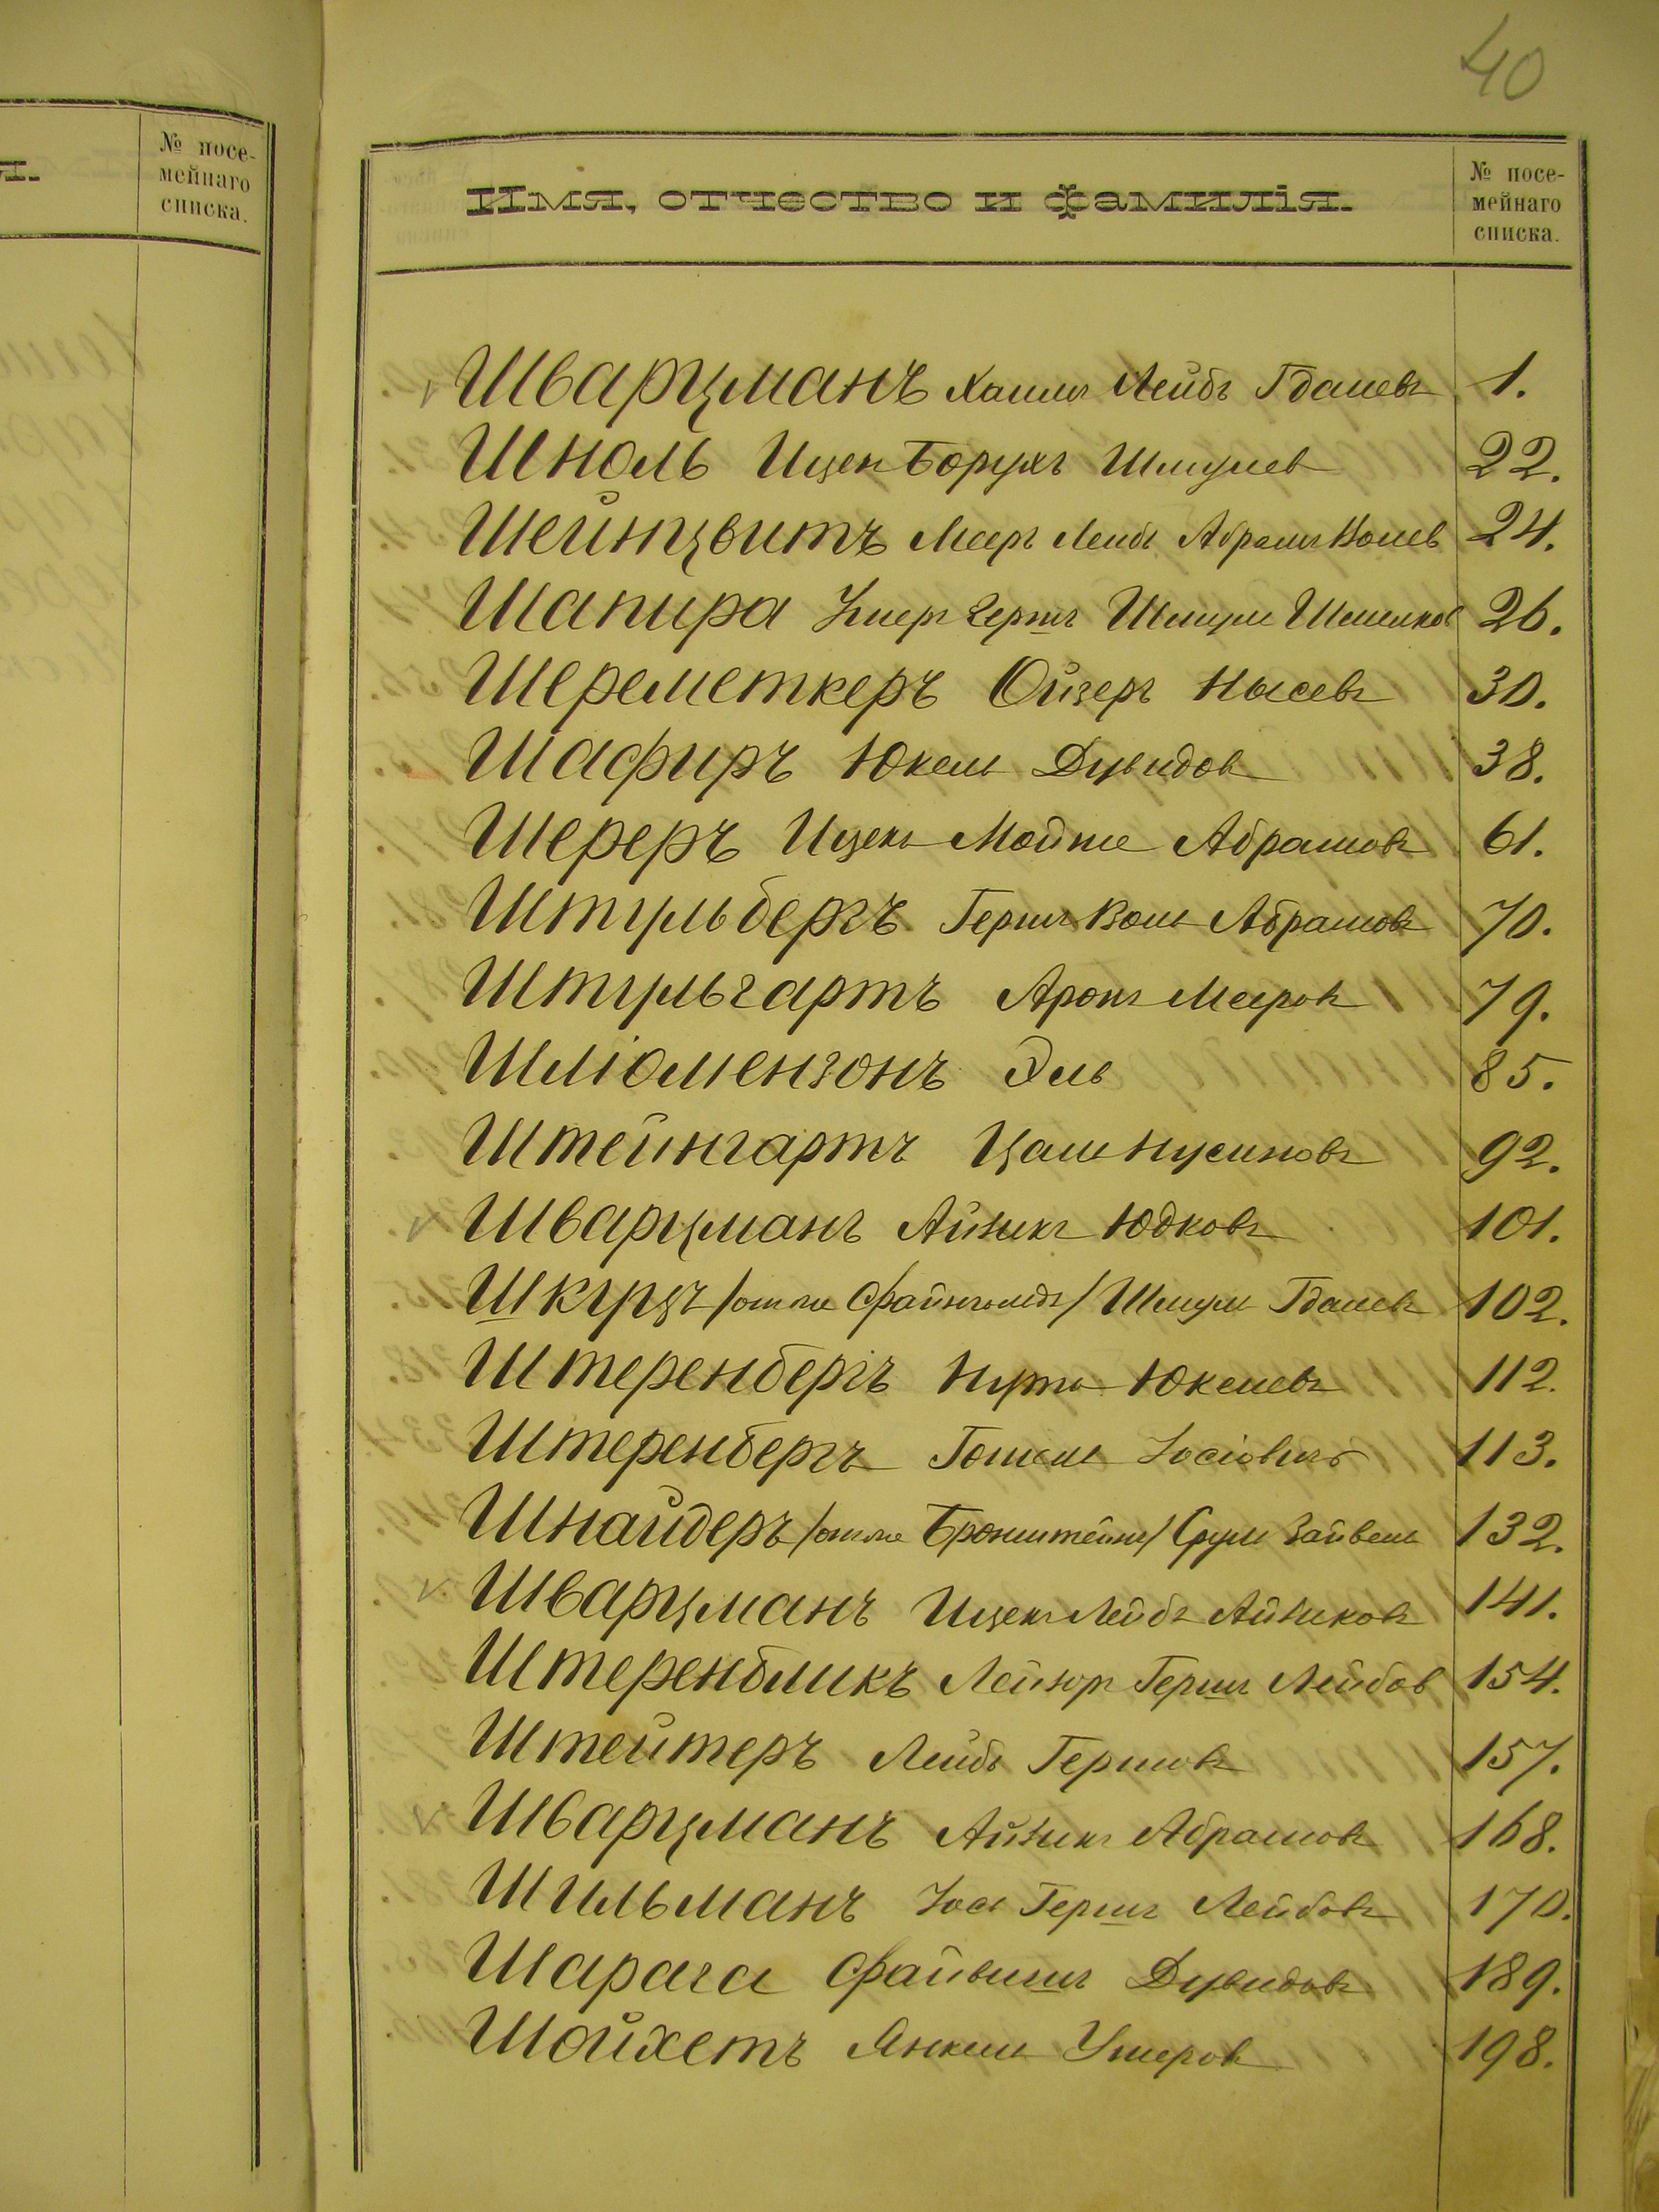 40
№ посе-
мейнаго
списка.
Имя, отчество и фамилія.
№ посе-
мейнаго
списка.
Шварцманъ Хаимъ Лейбъ Гдалевъ 1.
Шноль Ицек Борухъ Шмулев 22.
Шейнцвитъ Меер Лейбъ Абрам Волев 24.
Шапира Герш Шмуль 26.
Шереметкеръ Ойзеръ Нысевъ 30.
Шафиръ Юкель Дувидов 38.
Шереръ Ицек Мойше Абрамовъ 61.
Штульбергъ Герш Волъ Абрамовъ 70.
Штульгартъ Аронъ Мееров 79.
Шліомензонъ Эль 85.
Штейнгартъ Цаль Нусиновъ 92.
Шварцманъ Айзикъ Юдковъ 101.
Шкурцъ /он же Файнгольдъ/ Шмуль Гдалевъ 102.
Штеренбергъ Нута Юкелевъ 112.
Штеренбергъ Іосіовичъ 113.
Шнайдеръ /он же Бронштейнъ/ Срулъ Зайвель 132.
Шварцманъ Ицекъ Лейбъ Айзиковъ 141.
Штеренбликъ Лейзор Гершъ Лейбов 154.
Штейтеръ Лейбъ Гершовъ 157.
Шварцманъ Айзикъ Абрамовъ 168.
Шильманъ Іосъ Гершъ Лейбовъ 170.
Шарага Файвишъ Дувидовъ 189.
Шойхетъ Янкель Ушеров 198.